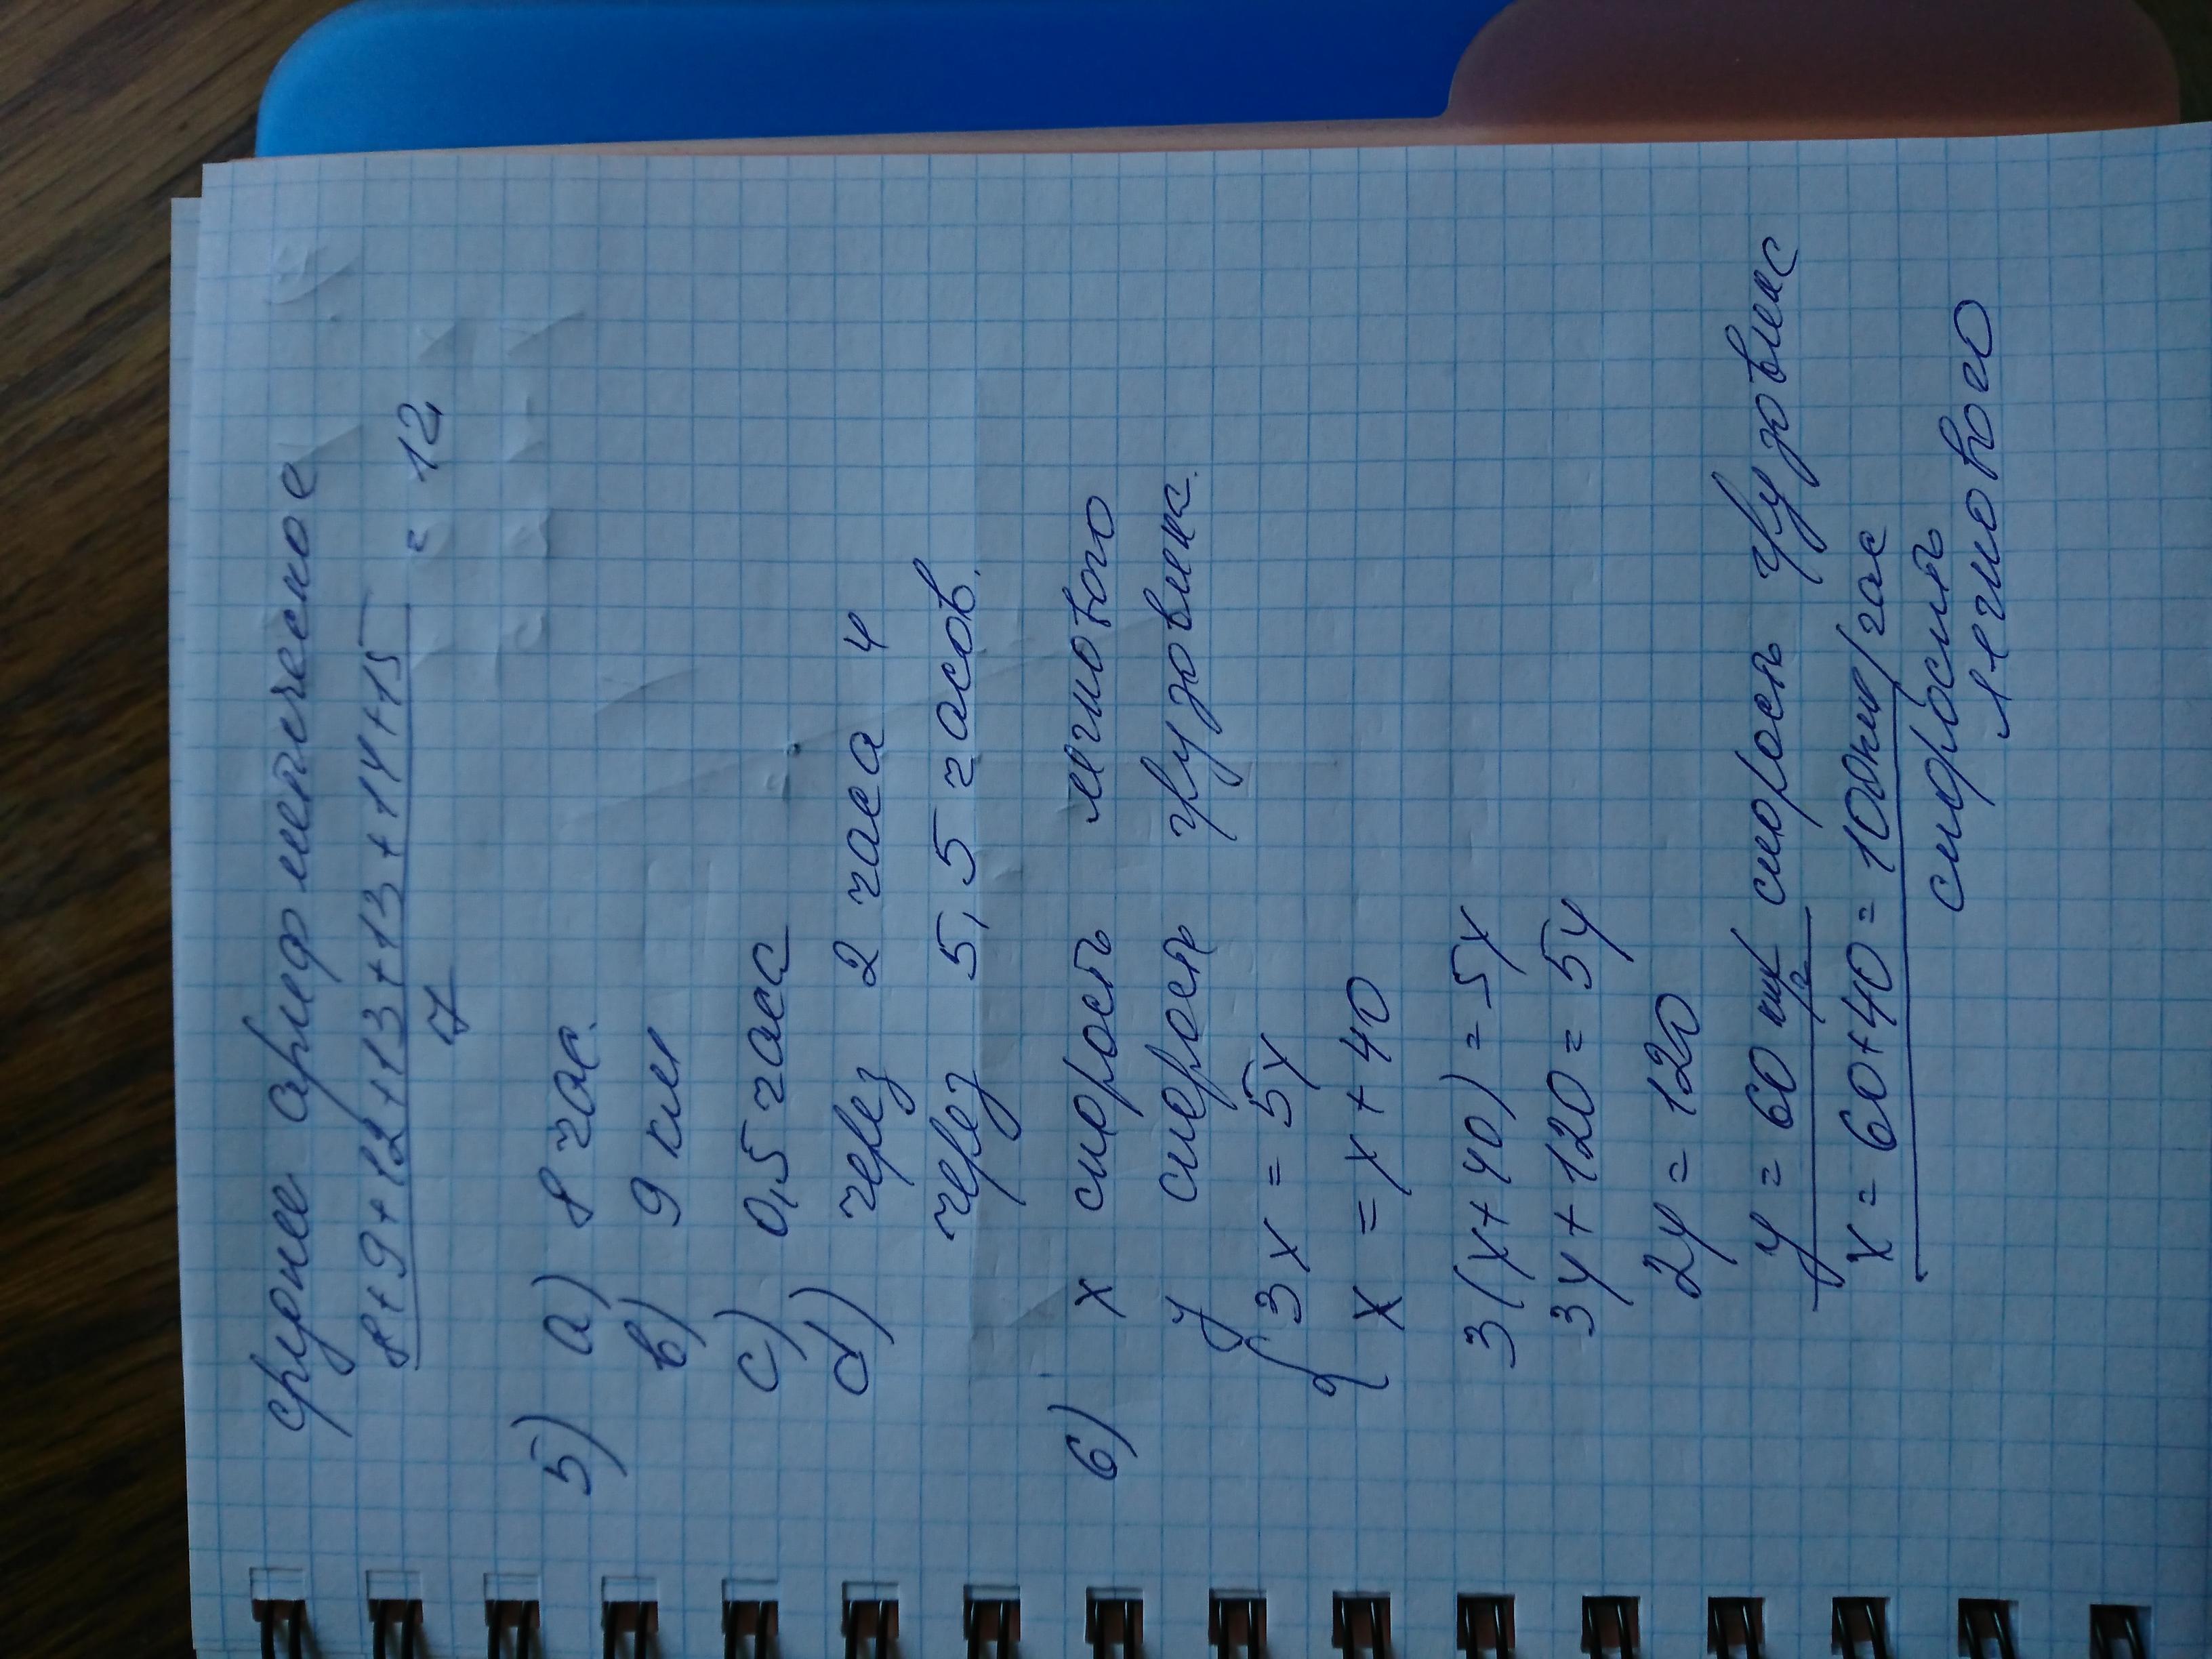 среднее арифметическое
8+9+12+13+13+14+15 = 12
7
5) а) 8 час.
в) 9 км
с) 0,5 часа
d) через 2 часа ч
через 5,5 часов.
6) х скорость легкового
у скорость грузовика.
3х = 5у
х = у + 40
3(у+40) = 5у
3у + 120 = 5у
2у = 120
у = 60 км/ч скорость грузовика
х = 60+40 = 100км/час
скорость
легкового